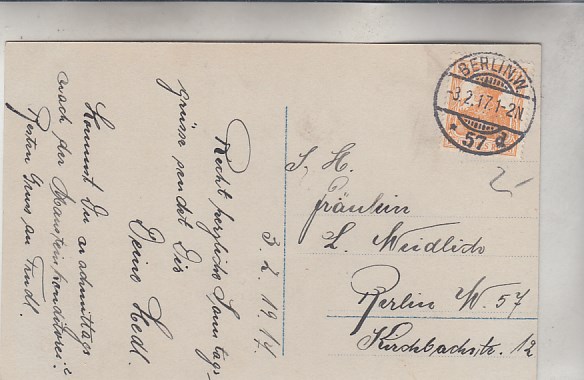 3. 2. 1917.
Recht herzliche Sonntags-
grüsse sendet Dir
Deine Hedl.
Kommst Du nachmittags
nach der Mansteinkonditorei?
Besten Gruss an Trudl.
BERLIN.W.
-3.2.17.1-2N.
* 57 d
S. H.
Fräulein
L. Weidlich
Berlin W. 57
Kirchbachstr. 12